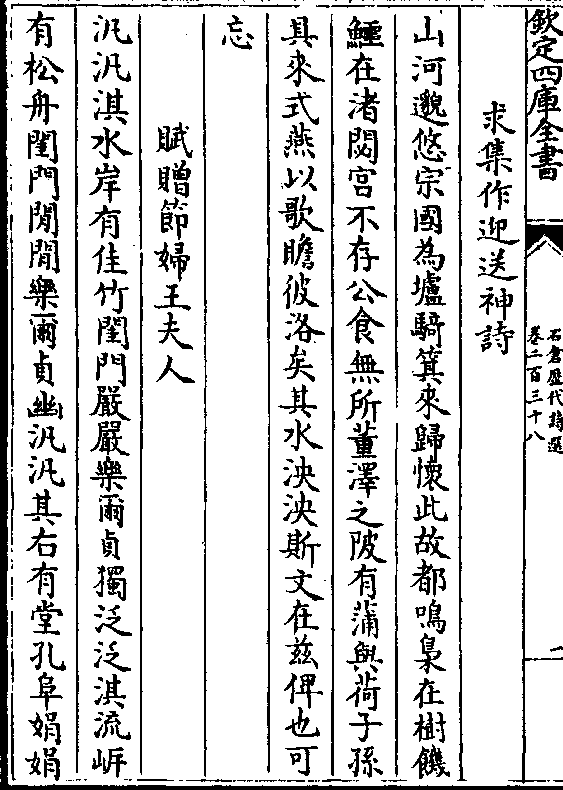 欽定四庫全書
石倉歷代詩選
卷二百三十八
一
求集作迎送神詩
山河邈悠宗國為墟騎箕來歸懷此故都鳴梟在樹饑
鱷在渚閟宮不存公食無所董澤之陂有蒲與荷子孫
具來式燕以歌瞻彼洛矣其水泱泱斯文在茲俾也可
忘
賦贈節婦王夫人
汎汎淇水岸有佳竹閨門嚴嚴樂爾貞獨泛泛淇流㟁
有松舟閨門閒閒樂爾貞幽汎汎其右有堂孔阜娟娟